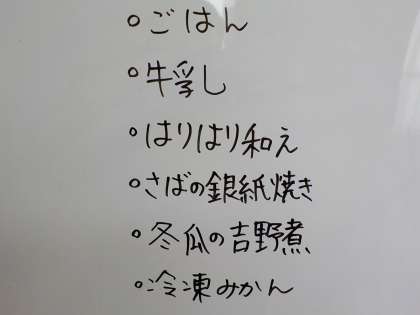 ○ごはん
○牛乳
○はりはり和え
○さばの銀紙焼き
○冬瓜の吉野煮
○冷凍みかん